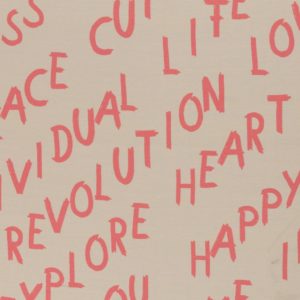 SS CUT LIFE
ACE LIT LO
VIDUAL
REVOLUTION HEART
EXPLORE HAPPY
XPLO OU